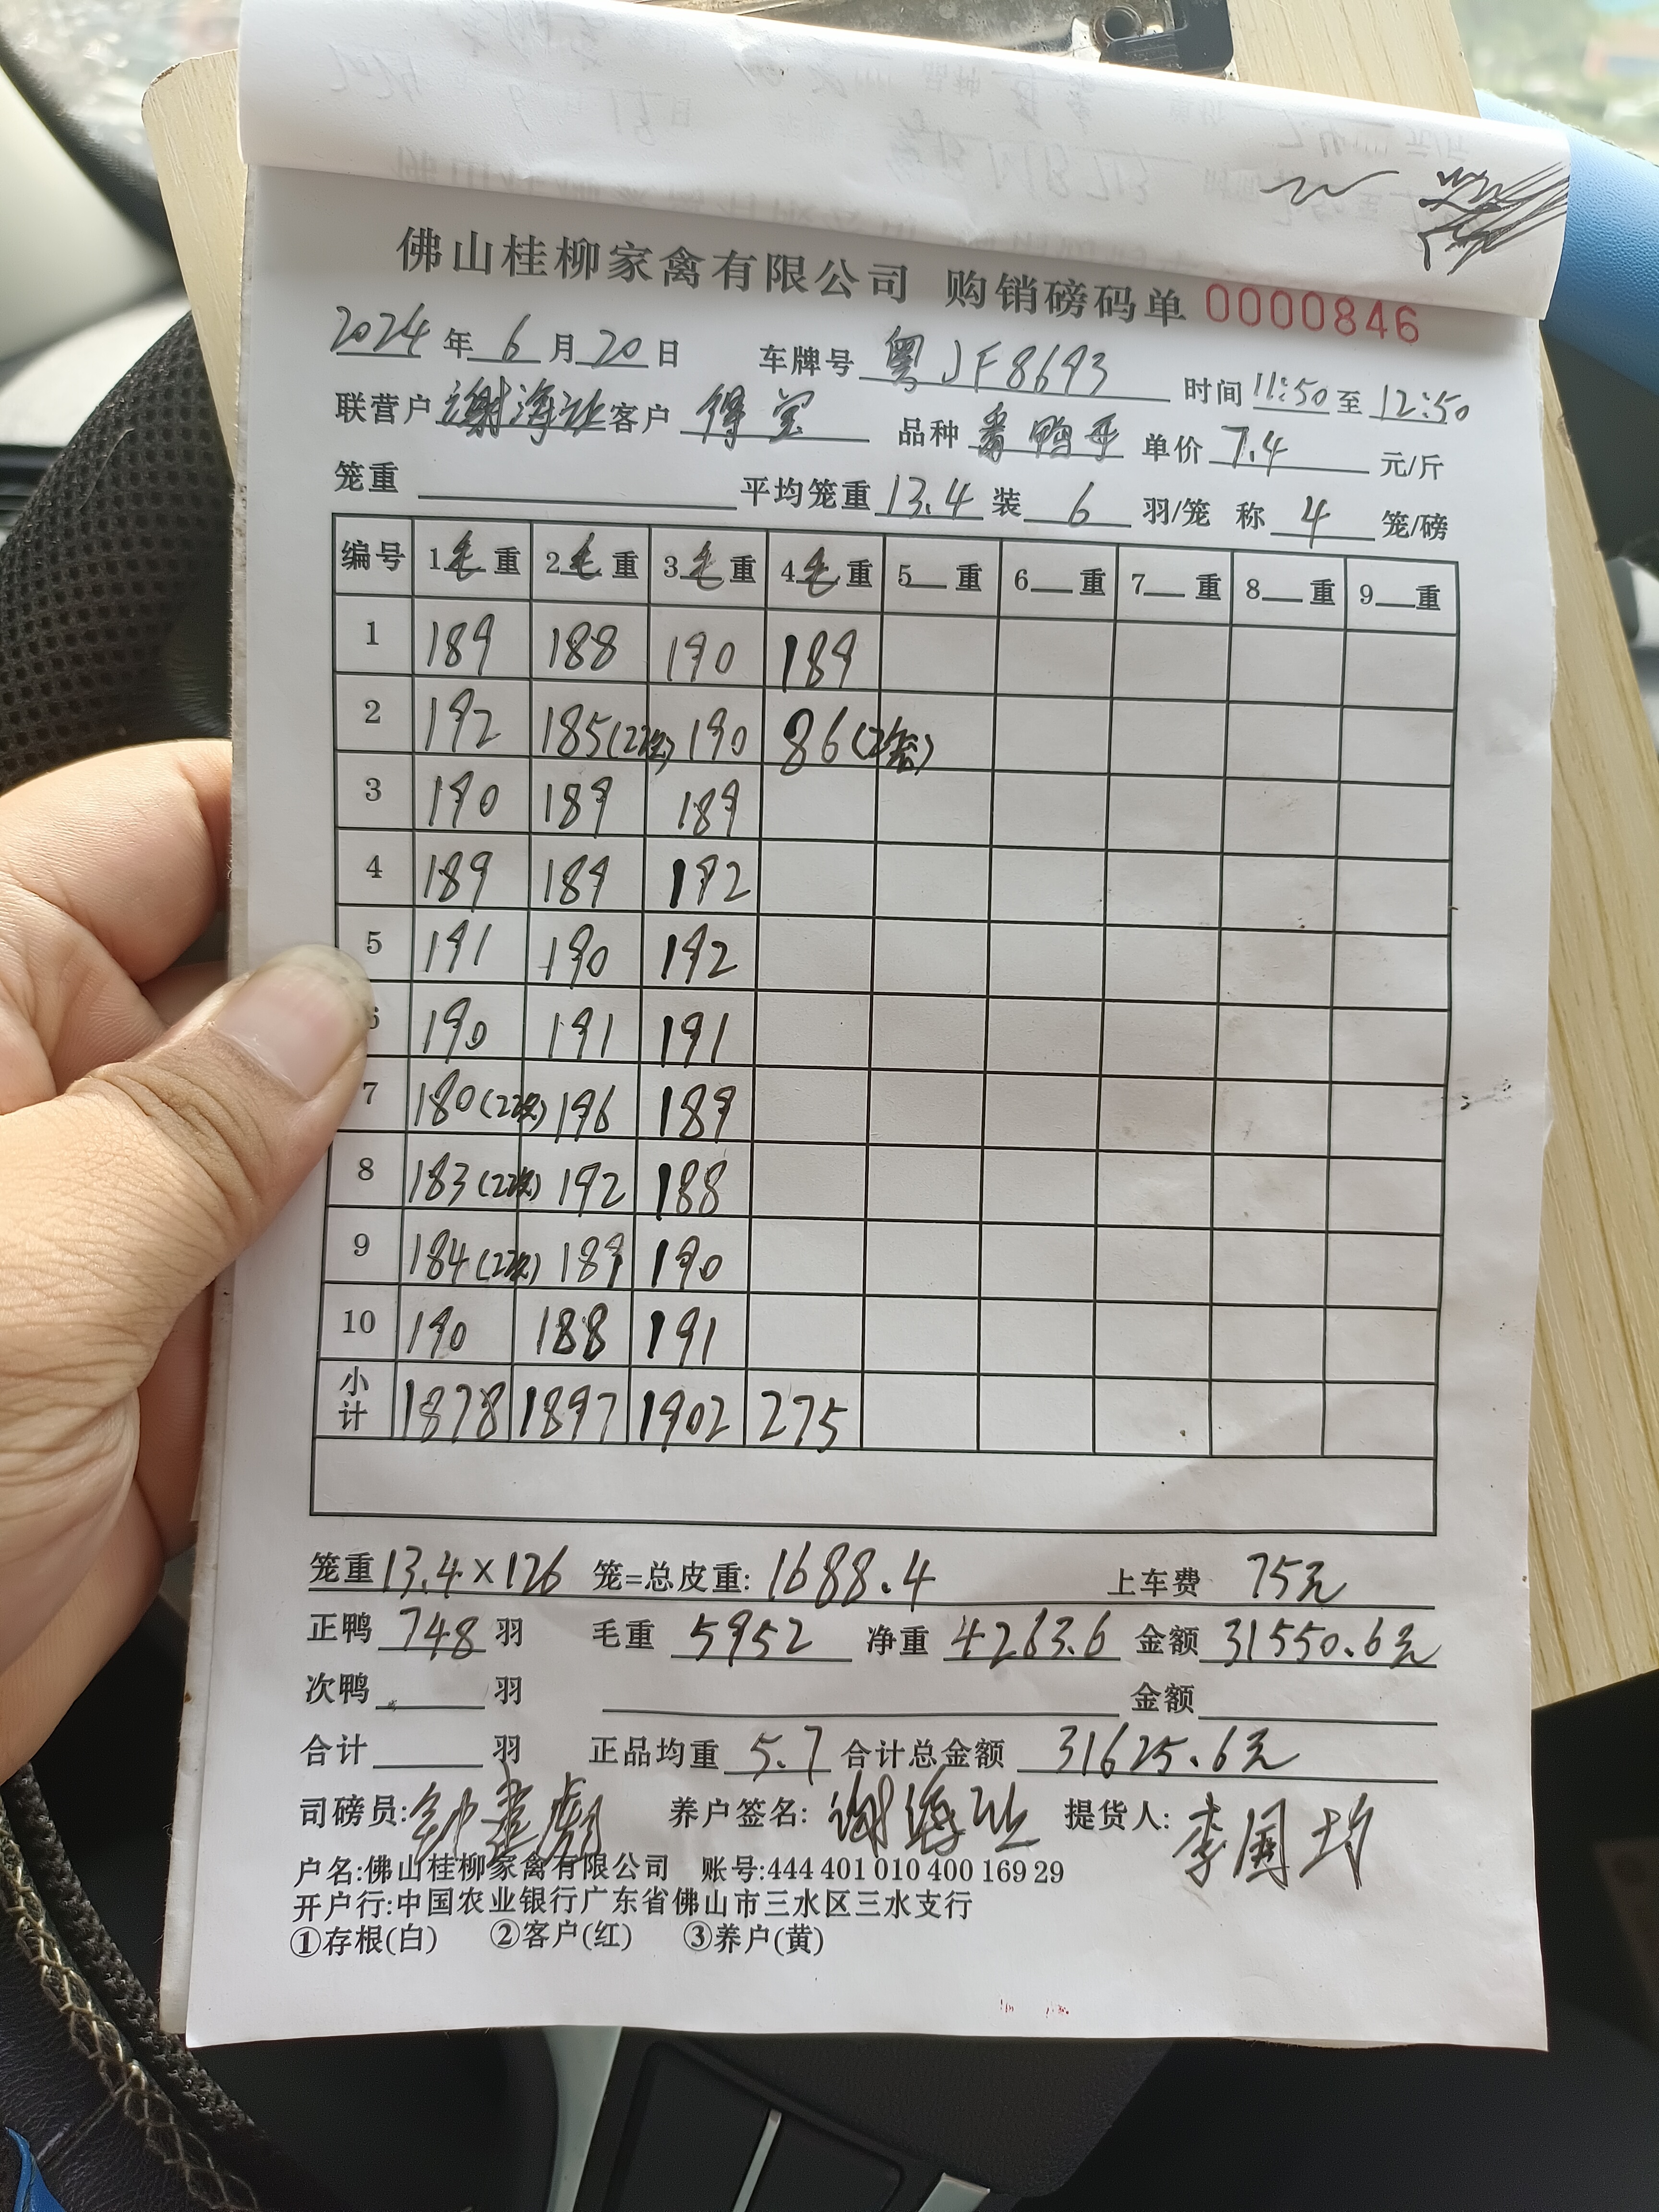 佛山桂柳家禽有限公司 购销磅码单 0000846
2024 年 6 月 20 日 车牌号 粤JF8693 时间 11:50 至 12:50
联营户 谢海 客户 得宝 品种 番鸭 单价 7.4 元/斤
笼重 平均笼重 13.4 装 6 羽/笼 称 4 笼/磅
编号 1毛重 2毛重 3毛重 4毛重 5__重 6__重 7__重 8__重 9__重
1 189 188 190 189
2 192 185(22只) 190 86(2笼)
3 190 189 189
4 189 189 192
5 191 190 192
6 190 191 191
7 180(22只) 196 189
8 183(22只) 192 188
9 184(22只) 189 190
10 190 188 191
小计 1878 1897 1902 275
笼重 13.4×126 笼=总皮重: 1688.4 上车费 75元
正鸭 748 羽 毛重 5952 净重 4263.6 金额 31550.6元
次鸭 羽 金额
合计 羽 正品均重 5.7 合计总金额 31625.6元
司磅员: 钟 养户签名: 谢海 提货人: 李国均
户名:佛山桂柳家禽有限公司 账号:444 401 010 400 169 29
开户行:中国农业银行广东省佛山市三水区三水支行
①存根(白) ②客户(红) ③养户(黄)